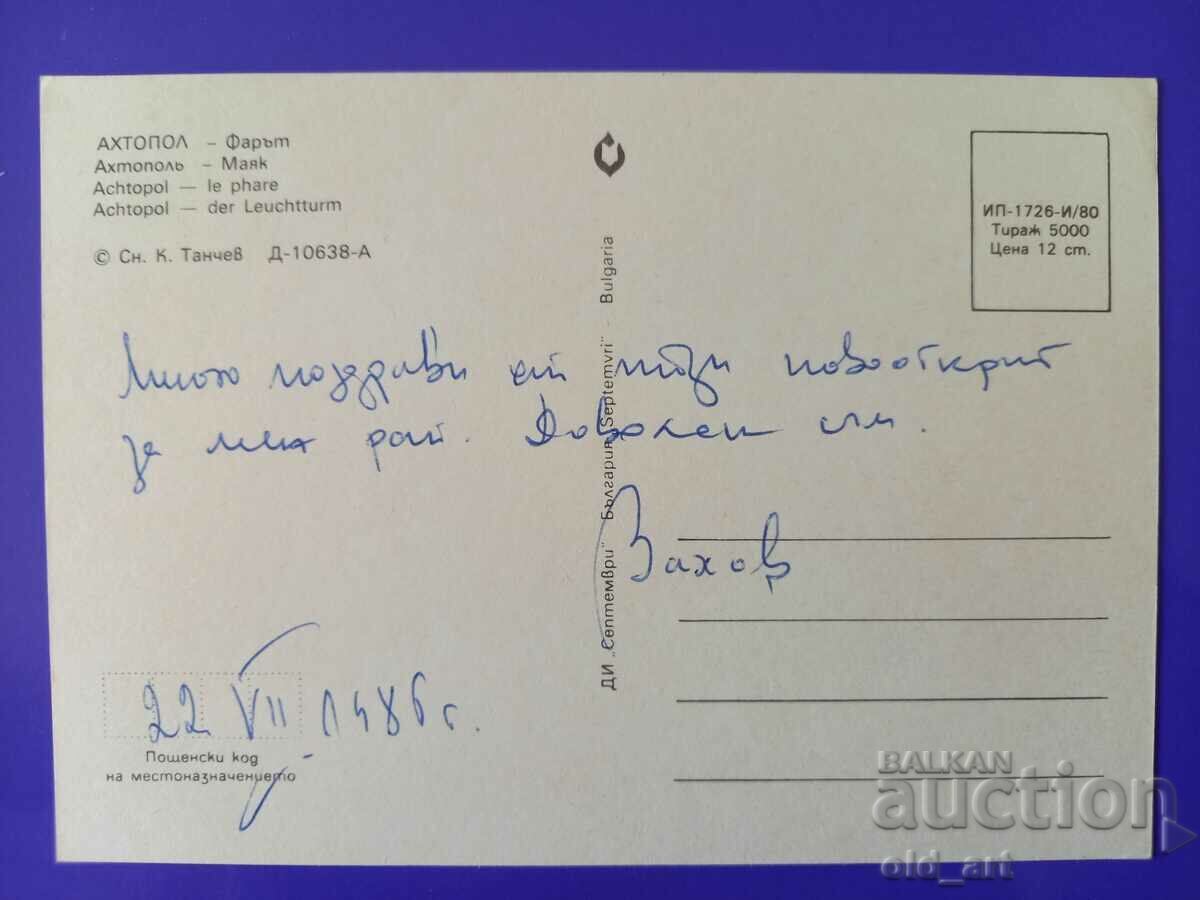 АХТОПОЛ – Фарът
Ахтополь – Маяк
Achtopol — le phare
Achtopol — der Leuchtturm
© Сн. К. Танчев Д-10638-А
ИП-1726-И/80
Тираж 5000
Цена 12 ст.
ДИ „Септември" България „Septemvri" - Bulgaria
Много поздрави от този новооткрит
за мен рай. Доволен съм.
Захов
22 VII 1986 г.
Пощенски код
на местоназначението
BALKAN
auction
old_art